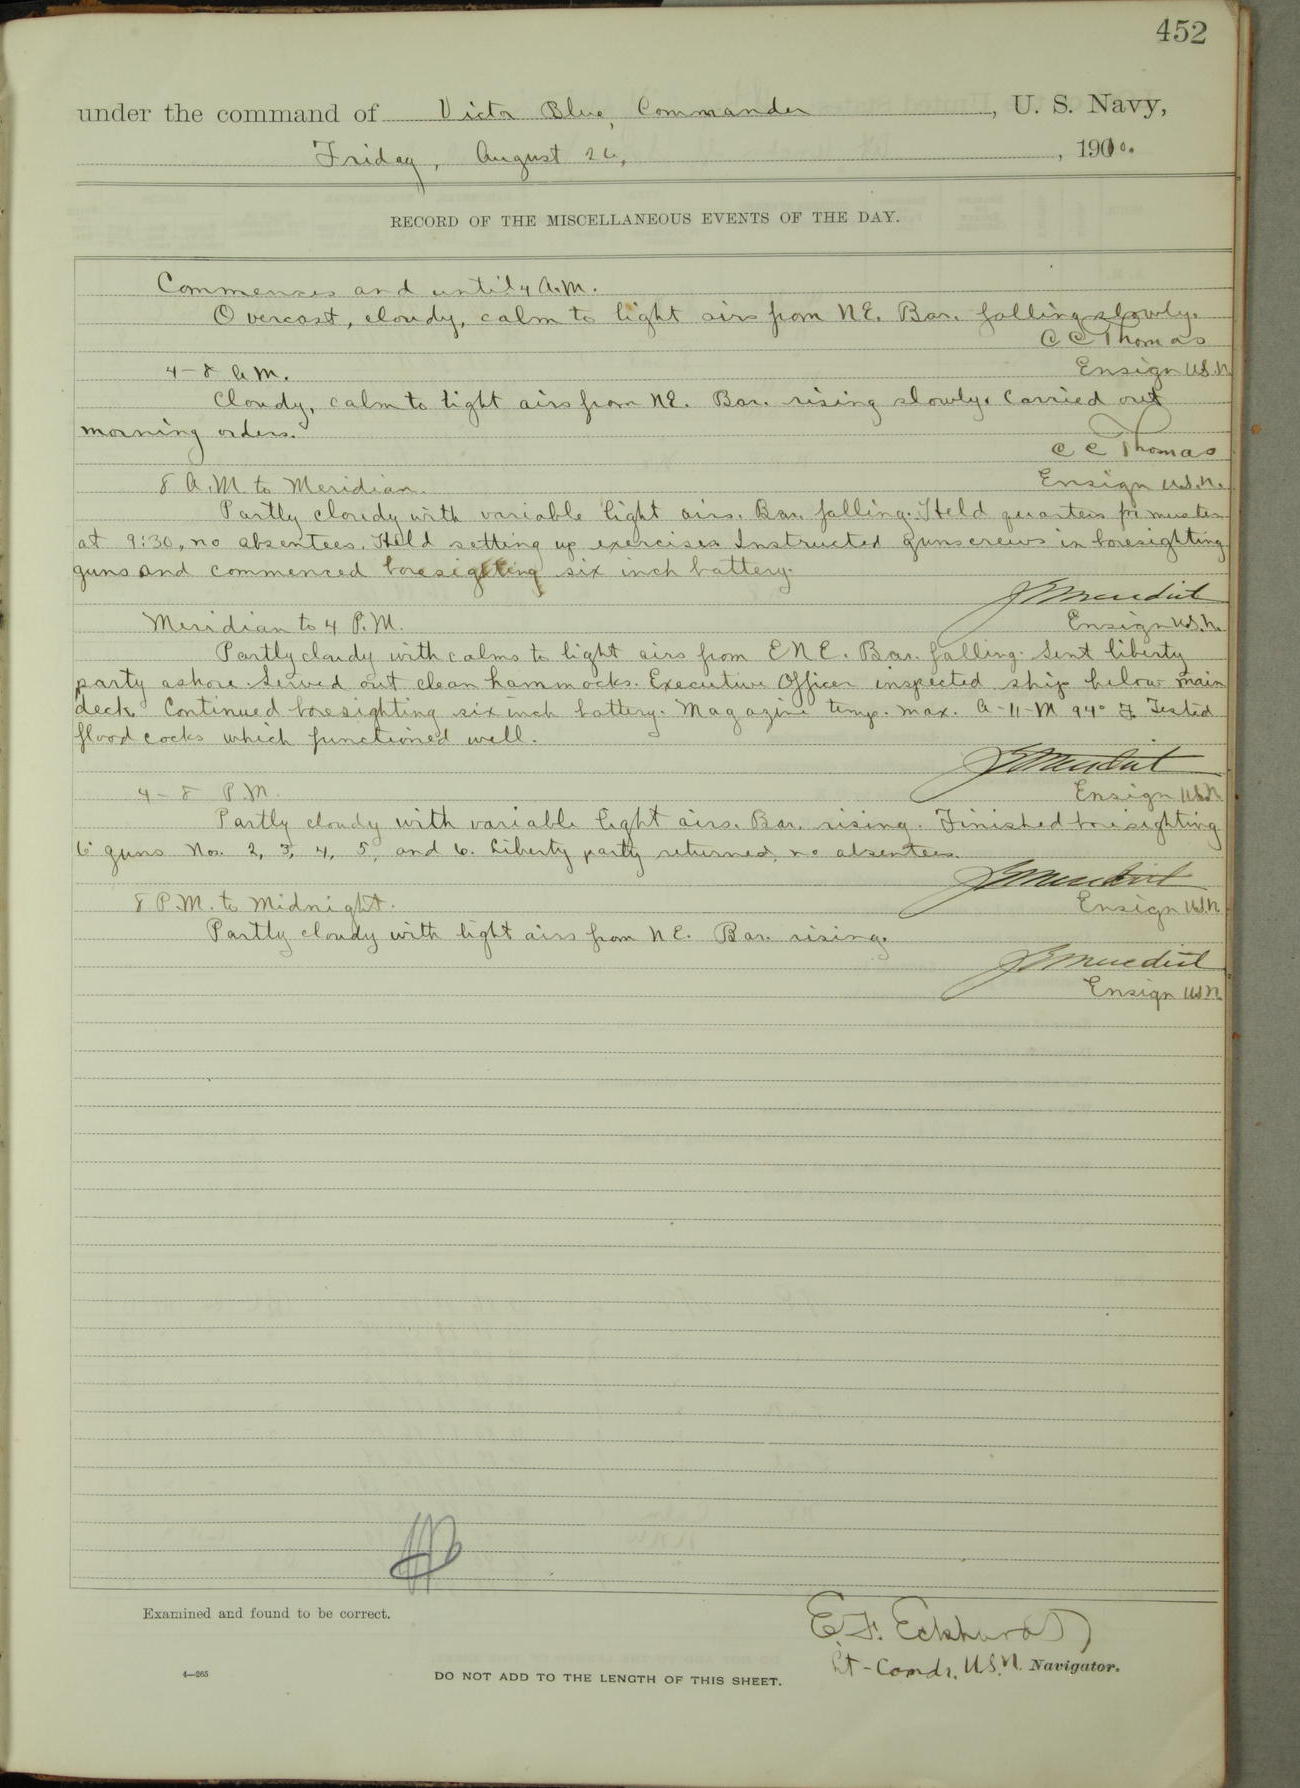 452
under the command of Victor Blue, Commander, U. S. Navy,
Friday, August 26, 1910.
RECORD OF THE MISCELLANEOUS EVENTS OF THE DAY.
Commences and until 4 A.M.
Overcast, cloudy, calm to light airs from NE. Bar. falling slowly.
C C Thomas
Ensign U.S.N.
4-8 A.M.
Cloudy, calm to light airs from NE. Bar. rising slowly. Carried out
morning orders.
C C Thomas
Ensign U.S.N.
8 A.M. to Meridian.
Partly cloudy with variable light airs. Bar. falling. Held quarters for muster
at 9:30, no absentees. Held setting up exercises Instructed guns crews in boresighting
guns and commenced boresighting six inch battery.
Ensign U.S.N.
Meridian to 4 P.M.
Partly cloudy with calms to light airs from ENE. Bar. falling. Sent liberty
party ashore. Served out clean hammocks. Executive Officer inspected ship below main
deck. Continued boresighting six inch battery. Magazine temp. max. A-11-M 94° F. Tested
flood cocks which functioned well.
Ensign U.S.N.
4-8 P.M.
Partly cloudy with variable light airs. Bar. rising. Finished boresighting
6" guns Nos. 2, 3, 4, 5, and 6. Liberty party returned, no absentees.
Ensign U.S.N.
8 P.M. to Midnight.
Partly cloudy with light airs from NE. Bar. rising.
Ensign U.S.N.
Examined and found to be correct.
E. F. Eckhardt
Lt-Comdr. U.S.N. Navigator.
4—265
DO NOT ADD TO THE LENGTH OF THIS SHEET.